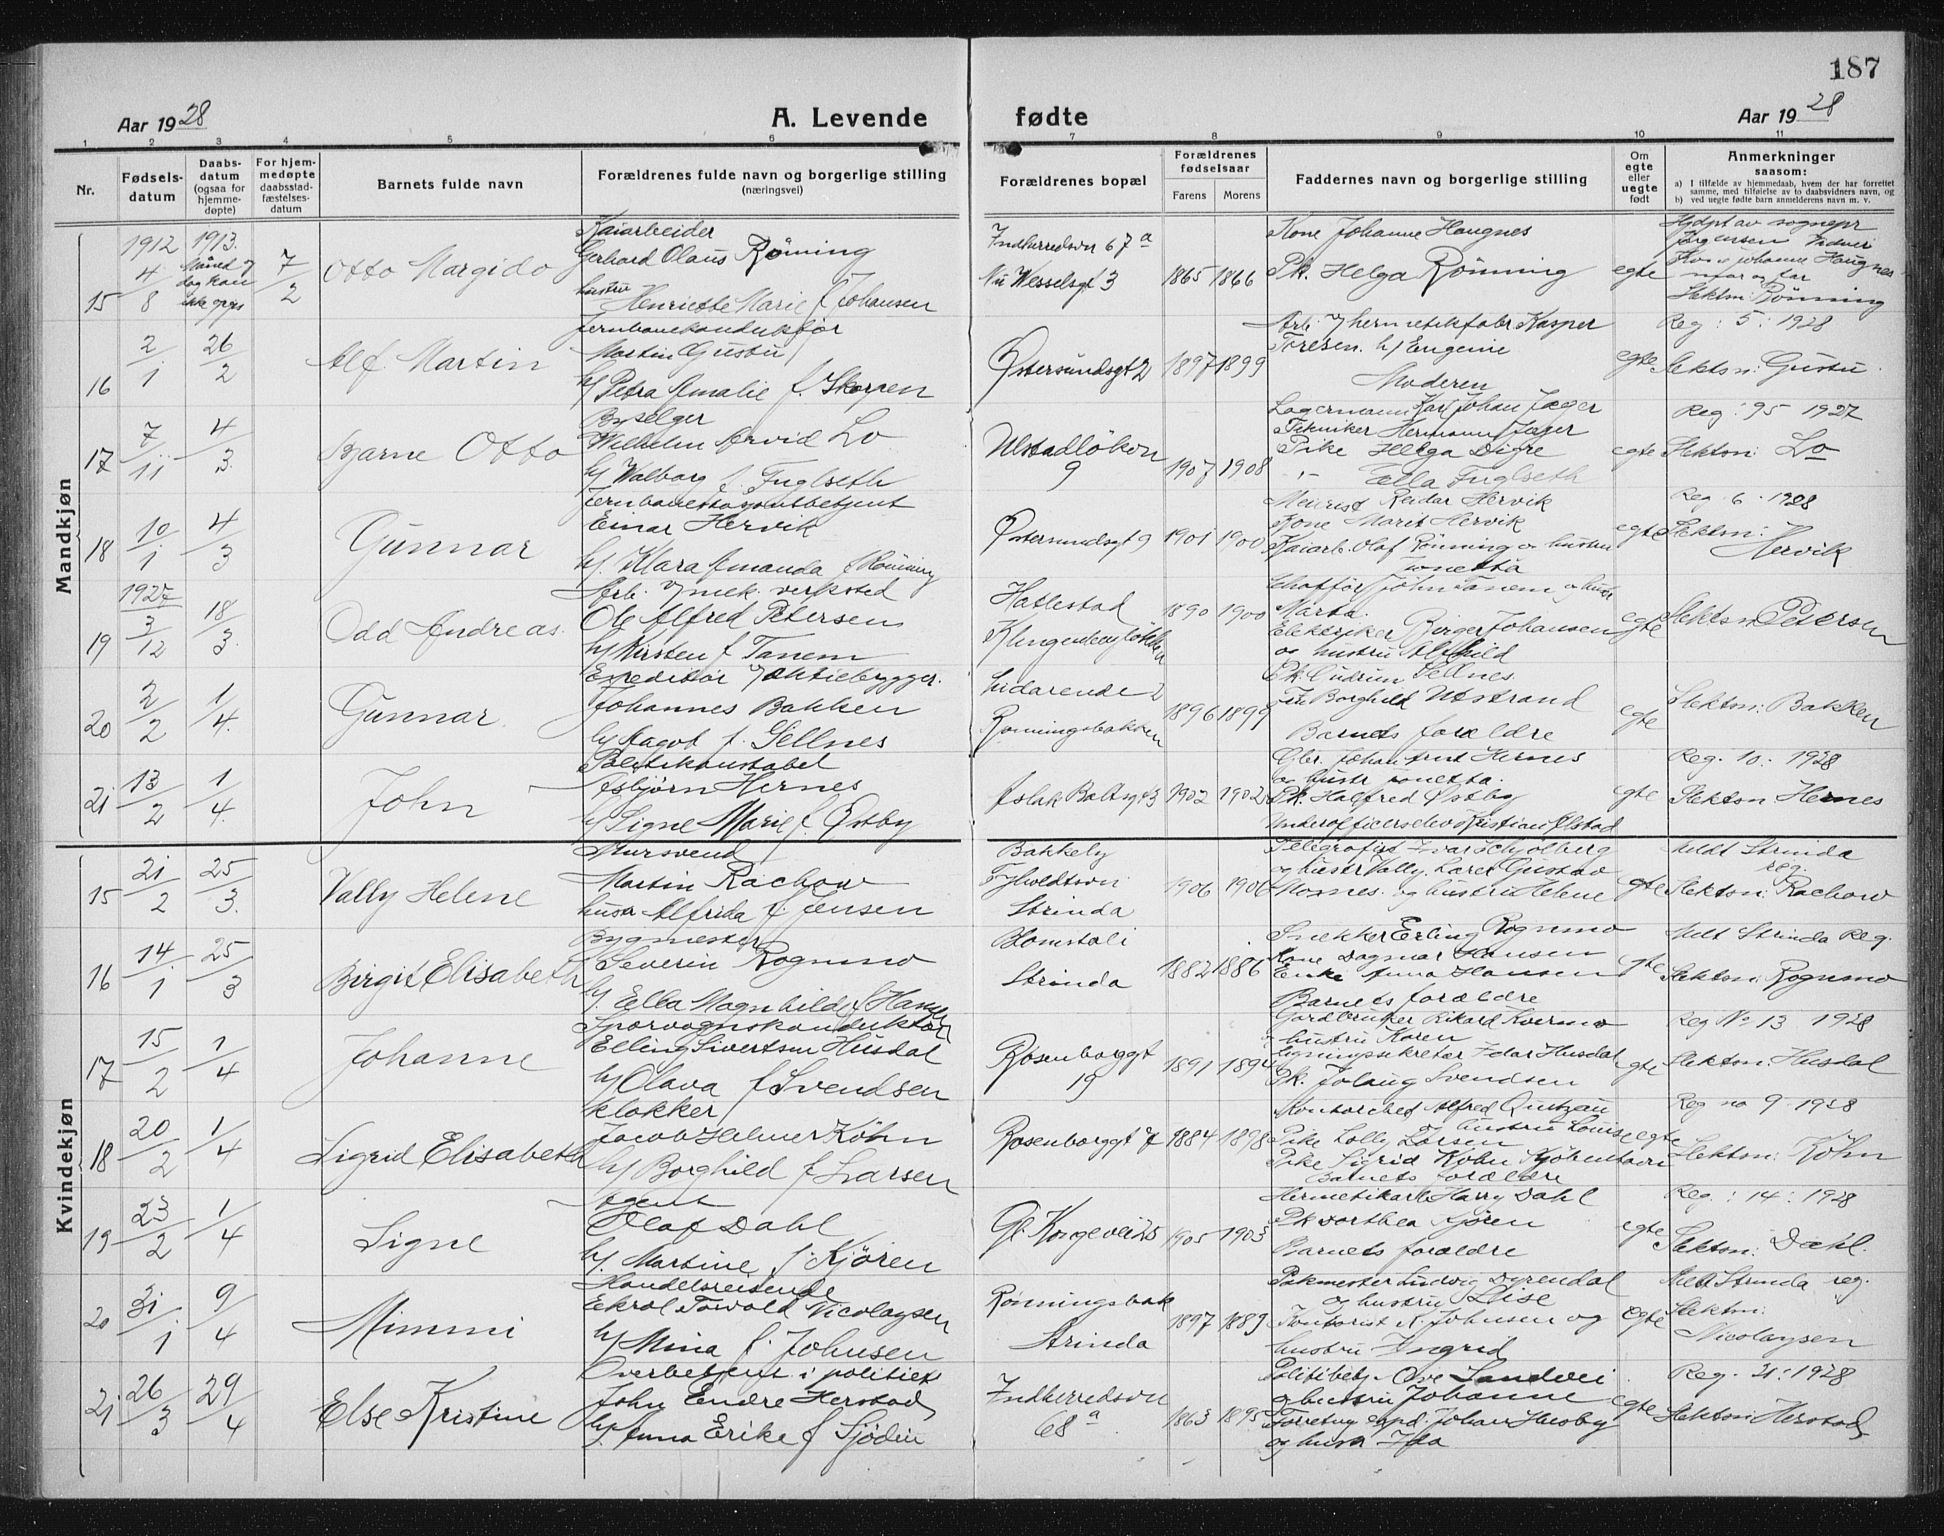 187
Aar 1928
A. Levende
fødte
Aar 1928
1 2 3 4 5 6 7 8 9 10 11
Nr.
Fødsels-
datum
Daabs-
datum
(ogsaa for
hjemme-
døpte)
For hjem-
medøpte
daabsstad-
fæstelses-
datum
Barnets fulde navn
Forældrenes fulde navn og borgerlige stilling
(næringsvei)
Forældrenes bopæl
Forældrenes
fødselsaar
Farens Morens
Faddernes navn og borgerlige stilling
Om
egte
eller
uegte
født
Anmerkninger
saasom:
a) I tilfælde av hjemmedaab, hvem der har forrettet
samme, med tilføielse av to daabsvidners navn, og
b) ved uegte fødte barn anmelderens navn m. v.
Mandkjøn
15
1912
4/8
1913.
7/2
Otto Margido
Kaiarbeider
Gerhard Olaus Rönning
hustru
Henriette Marie f Johansen
Indherredsvn 67 a
Nu Wesselsgt 3
1865 1866
Kone Johanne Haugnes
Pk. Helga Rönning
egte
Hjdpt av sognepr
Jørgensen Vidner
Kone Johanne Haugnes
mor og far
Slektsn: Rönning
16
2/1
26/2
Alf Martin
Jernbanekonduktør
Martin Gustu
h/ Petra Amalie f. Skoren
Østersundsgt 2
1897 1899
Arb. v/ hermetikfabr Kasper
Toresen. h/ Eugenie
Moderen
egte
Reg: 5: 1928
Slektsn: Gustu
17
7/11
4/3
Bjarne Otto
Byselger
Wilhelm Arvid Lo
h/ Valborg f. Fuglseth
Ulstadløkken
9
1907 1908
Lagermann Karl Johan Jæger
Tekniker Hermann Jæger
Pike Helga Digre
Ella Fuglseth
egte
Reg: 95 1927
Slektsn: Lo
18
10/1
4/3
Gunnar
Einar Hervik
h/. Klara Amanda f Rönning
Østersundsgt 9
1901 1900
Reidar Hervik
Kone Marit Hervik
Kaiarb. Olaf Rönning og hustru
Jonetta
egte
Reg. 6. 1928
Slektsn:
Hervik
19
1927
3/12
18/3
Odd Andreas.
Arb. v/ mek. verksted
Ole Alfred Petersen
h/ Kirsten f Tanem
Hatlestad
Klingenberg
1890 1900
Chaffør John Tanem og hust
Marta.
Elektriker Birger Johansen
og hustru Alfhild
egte
Slektsn Petersen
20
2/2
1/4
Gunnar
Expeditør v/ Aktiebrygger.
Johannes Bakken
h/ Aagot f. Gellnes
Lidarende 2
Rønningsbakken
1896 1899
Pk Gudrun Gellnes.
Borghild Utstrand
Barnets forældre
egte
Slektsn: Bakken
21
13/2
1/4
John
Politikonstabel
Asbjørn Hernes
h/ Signe Marie f. Østby
Aslak Boltsgt 3
1902 1902
Hernes
og hustr Jonetta.
Pk. Halfred Østby
Underofficerselev Kristian Ølstad
egte
Reg. 10: 1928
Slektsn Hernes
Kvindekjøn
15
21/2
25/3
Vally Helene
Mursvend
Martin Rachow
hustr Alfrida f Jensen
Bakkely
Strinda
1906 1906
Telegrafist Ivar Schjølberg
og hustr Vally. Lærer Gustav
Mornes. og hustru Helene
egte
Meldt Strinda
reg.
Slektsn: Rachow
16
14/1
25/3
Birgit Elisabeth
Bygmester
Severin Rognmo
h/. Ella Magnhild f Hansen
Blomstoli
Strinda
1882 1886
Snekker Erling Rognmo
Kone Dagmar Hansen
Enke Anna Hansen
Barnets forældre
egte
Melt Strinda Reg.
Slektsn: Rognmo
17
15/2
1/4
Johanne
Sporvognskonduktør
Elling Sivertsen Husdal
h/ Olava f Svendsen
Rosenborggt
19
1891 1894
Gårdbruker Rikard Kvermo
hustru Karen
Ligningssekretær Idar Husdal
Pk. Jolaug Svendsen
egte
Reg No 13 1928
Slektsn: Husdal
18
20/2
1/4
Sigrid Elisabeth
Klokker
Jacob Helmer Köhn
h/ Borghild f Larsen
Rosenborggt 7
1884 1898
Kontorchef Alfred Quitzau
og hustru Louise
Pike Lolly Larsen
Pike Sigrid Köhn Kjøbenhavn
Barnets forældre
egte
Reg no 9. 1928
Slektsn: Köhn
19
23/2
1/4
Signe
Agent
Olaf Dahl
h/. Martine f. Kjören
Gl. Kongevei 25
1905 1903
Hermetikarb Harry Dahl
Pk Dorthea Kjören
Barnets forældre
egte
Reg.: 14: 1928
Slektsn: Dahl.
20
31/1
9/4
Mimmi
Handelsreisende
Ekrol Towald Nicolaysen
h/ Mina f. Johnsen
Rönningsbak
Strinda
1897 1889
Pakmester Ludvig Dyrendal
og hustru Elise
Kontorist K. Johnsen og
hustru Ingrid
egte
Melt Strinda reg.
Slektsn:
Nicolaysen
21
26/3
29/4
Else Kristine
Overbetjent i politiet
John Endre Herstad
h/. Anna Erike f Sjödin
Indherredsvn
68 a
1863 1895
Politibetj. Ove Sandvei
og hustru Johanne
Forretng expd. Johan Husby
og hustr Ida
egte
Reg. 21: 1928
Slektsn: Herstad